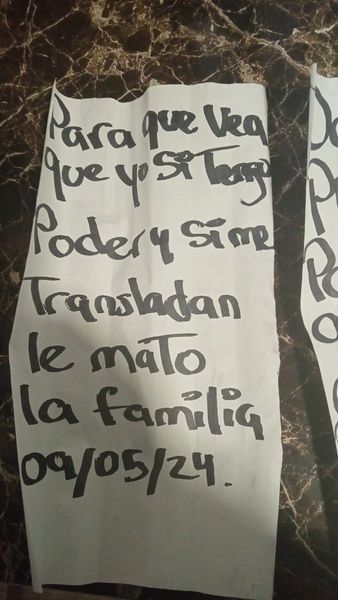 Para que vea
que yo si Tengo
Poder y si me
Transladan
le mato
la familia
09/05/24.